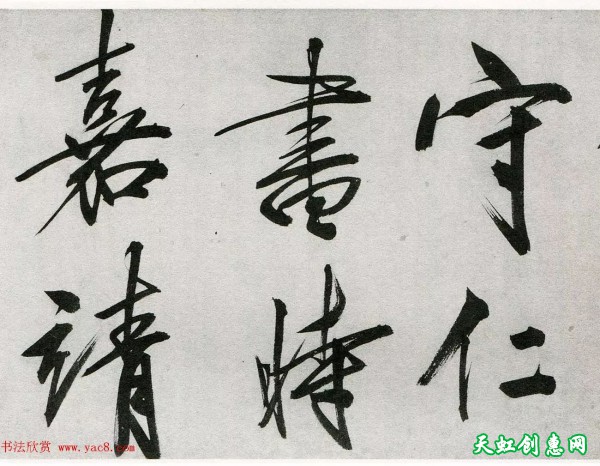 守仁
書時
嘉靖
书法欣赏 www.yac8.com
天虹创惠网